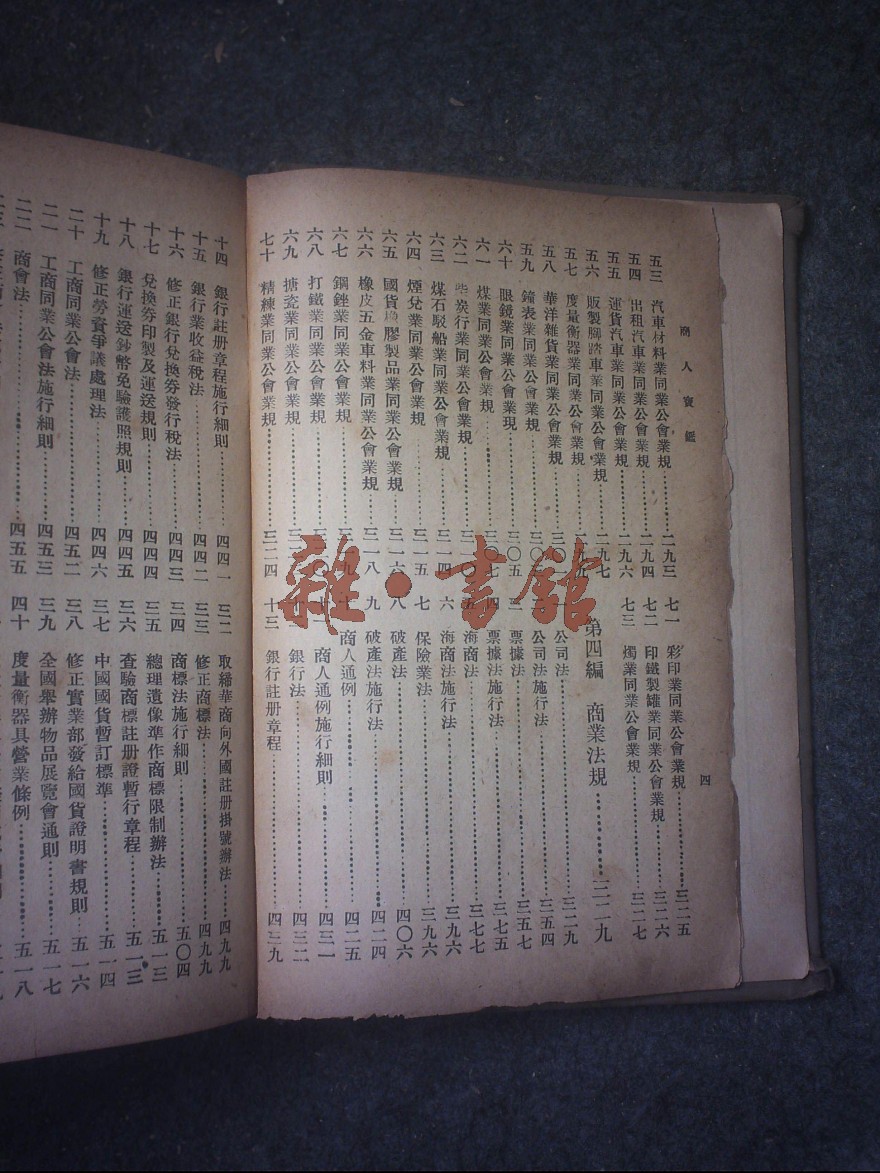 商人寶鑑
四
五三 汽車材料業同業公會業規 二九三
五四 出租汽車業同業公會業規 二九四
五五 運貨汽車業同業公會業規 二九六
五六 販製脚踏車業同業公會業規 二九七
五七 度量衡器業同業公會業規
五八 華洋雜貨業同業公會業規
五九 鐘表業同業公會業規
六一 眼鏡業同業公會業現
六二 煤業同業公會業規
柴炭行業同業公會業規
六三 煤石駁船業同業公會業規 三一四
六四 煙兌業同業公會業規 三一五
六五 國貨橡膠製品業同業公會業規 三一六
六六 橡皮五金車料業同業公會業規 三一八
六七 鋼銼業同業公會業規
六八 打鐵業同業公會業規
六九 搪瓷業同業公會業規
七十 精練業同業公會業規 三二四
七一 彩印業同業公會業規 三二五
七二 印鐵製罐業同業公會業規 三二六
七三 燭業同業公會業規 三二七
第四編 商業法規 三二九
一 公司法 三二九
二 公司法施行法 三五四
三 票據法 三五七
四 票據法施行法 三七五
五 海商法 三七七
六 海商法施行法 三九六
七 保險業法 三九六
八 破產法 四〇六
九 破產法施行法 四二四
十 商人通例 四二五
商人通例施行細則 四三一
銀行法 四三二
十三 銀行註册章程 四三九
十四 銀行註册章程施行細則 四四一
十五 銀行業收益稅法 四四二
十六 修正銀行兌換券發行稅法 四四三
十七 兌換券印製及運送規則 四四四
十八 銀行運送鈔幣免驗護照規則 四四五
十九 修正勞資爭議處理法 四四六
二十 工商同業公會法 四五二
二一 工商同業公會法施行細則 四五三
二二 商會法 四五五
三二 取締華商向外國註册掛號辦法 四九九
三三 修正商標法 四九九
三四 商標法施行細則 五〇四
三五 總理遺像準作商標限制辦法 五一三
三六 查驗商標註册證暫行章程 五一三
三七 中國國貨暫訂標準 五一四
三八 修正實業部發給國貨證明書規則 五一六
三九 全國舉辦物品展覽會通則 五一七
四十 度量衡器具營業條例 五一八
雜·書館